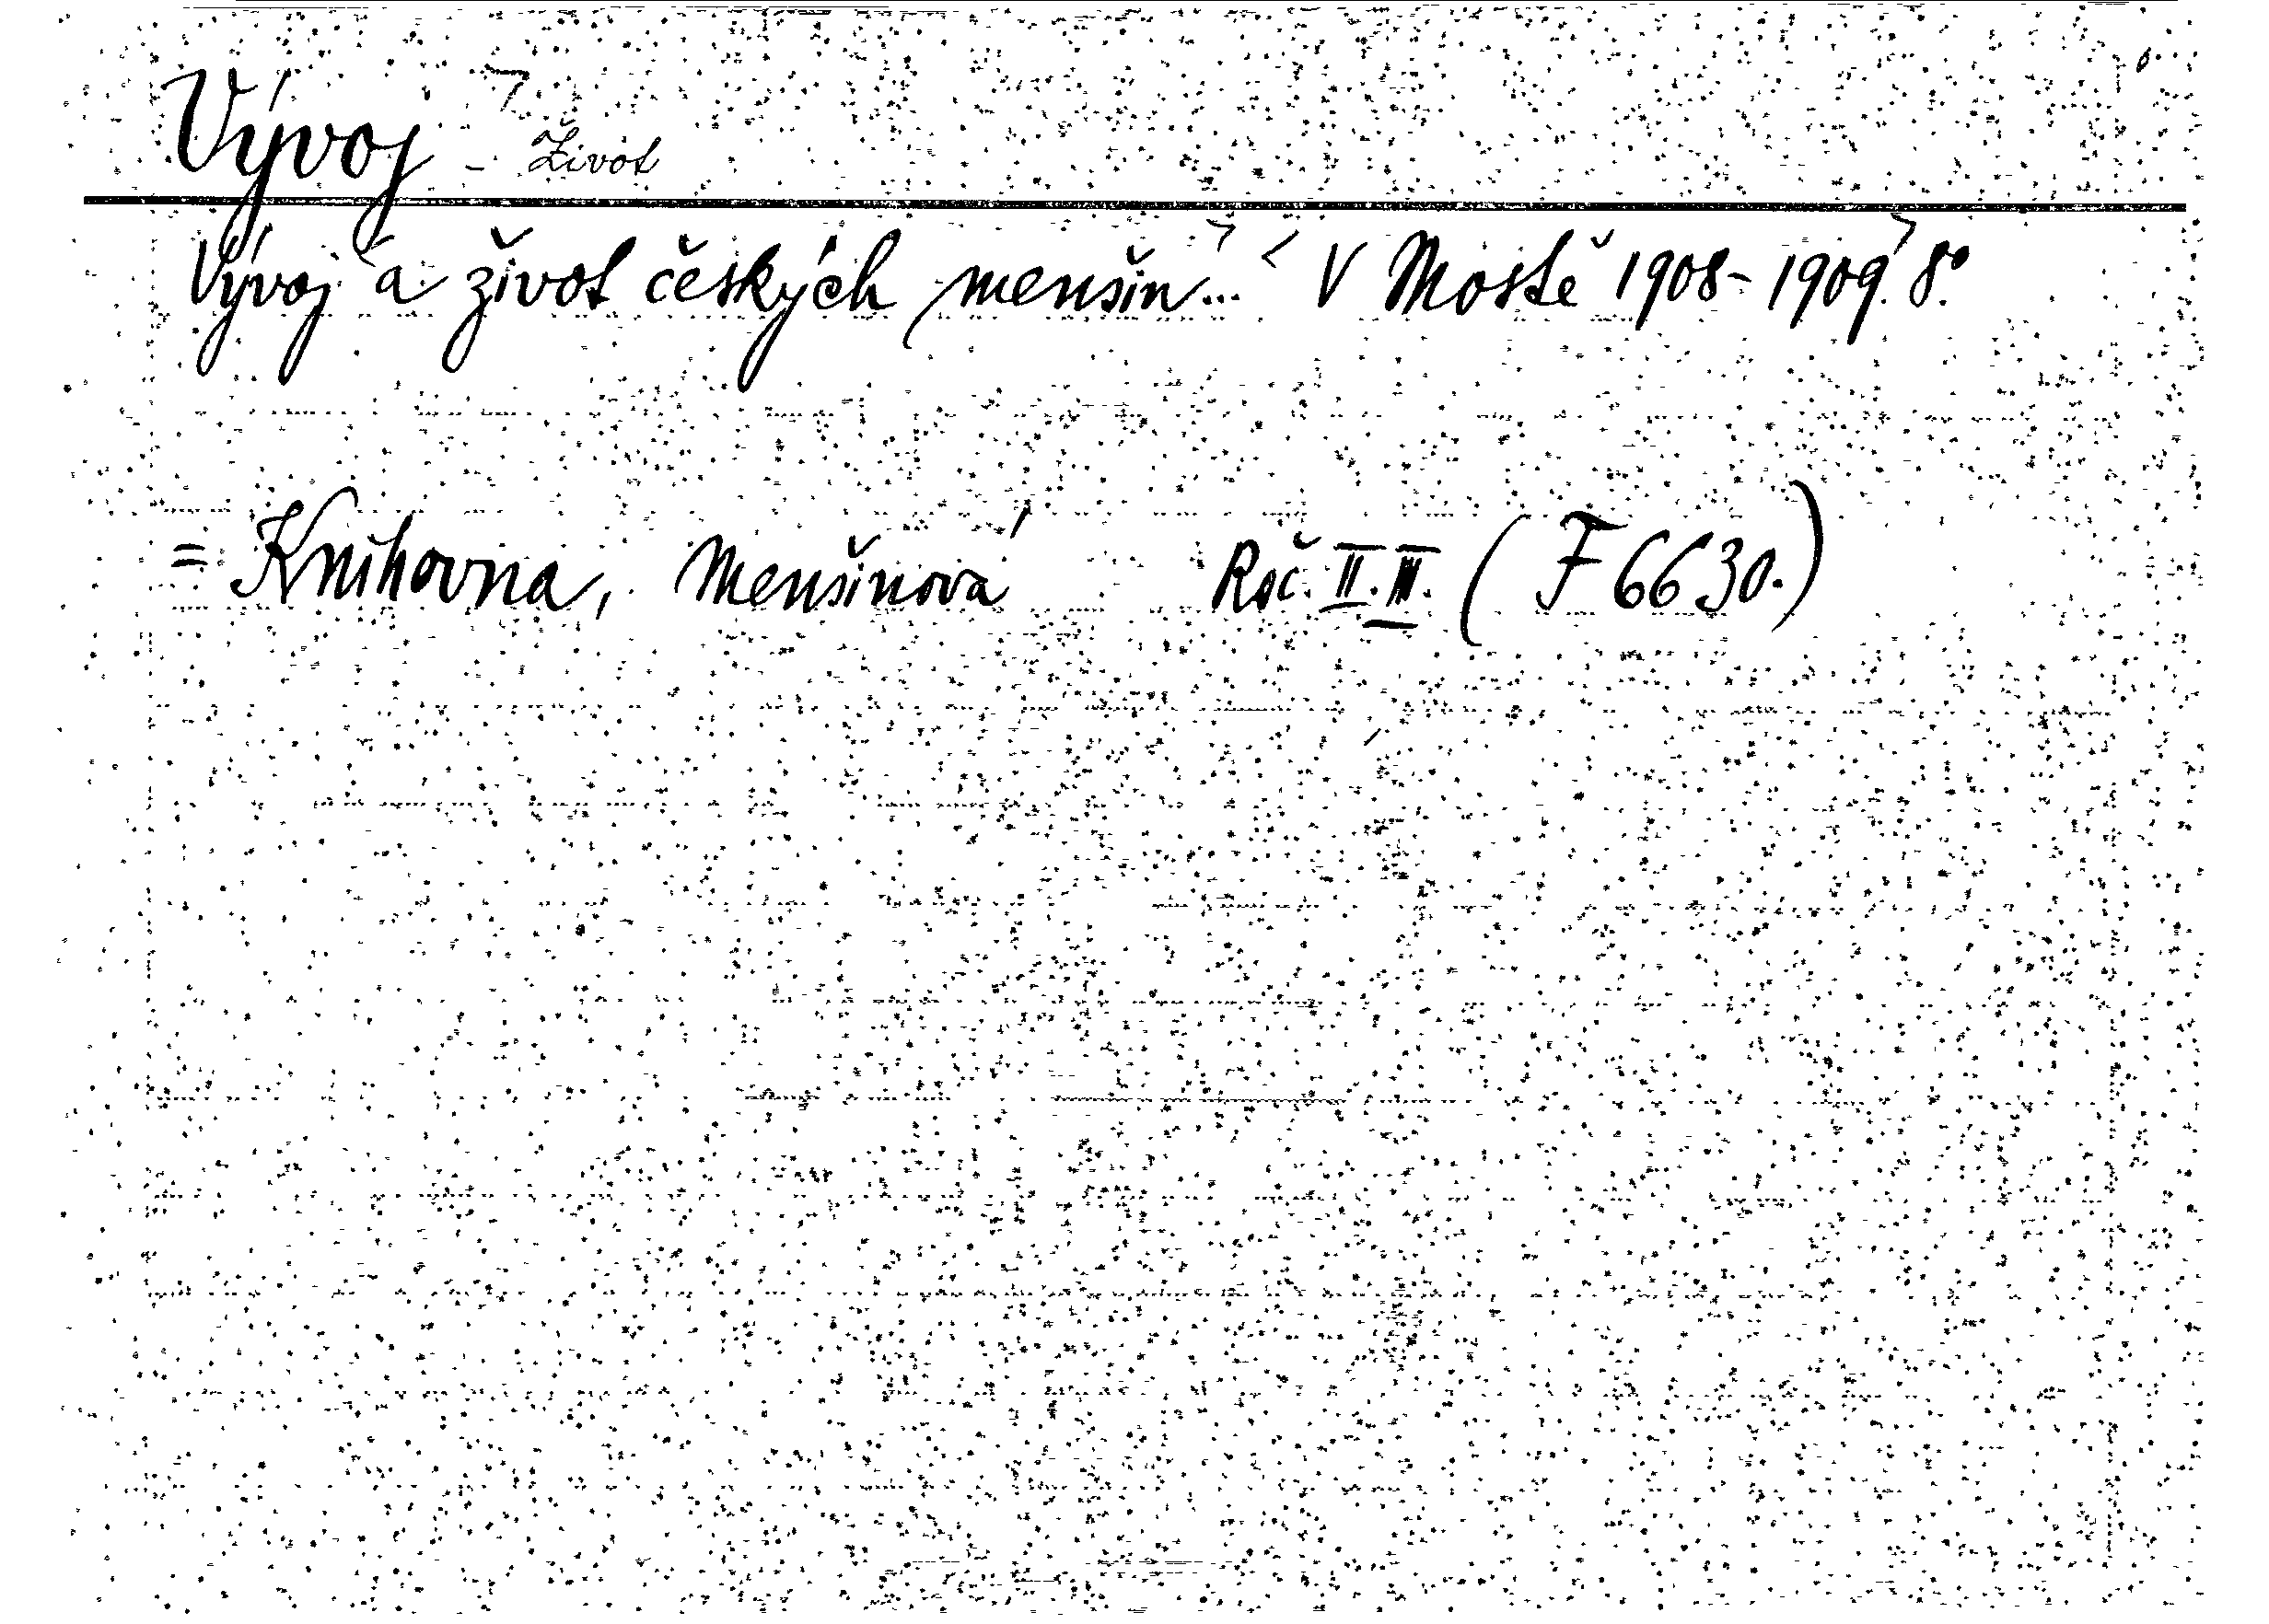 Vývoj - Život
Vývoj a život českých menšin... V Mostě 1908-1909. 8°.
= Knihovna, Menšinová Roč. II. III. (F 6630.)